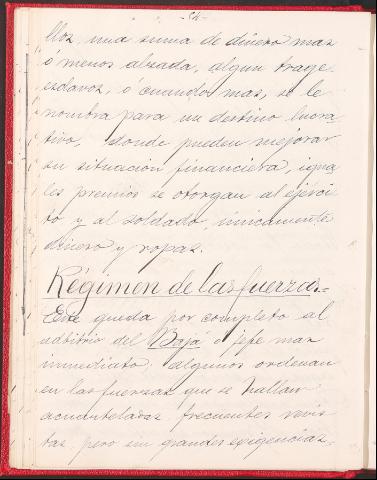 -54-
llos, una suma de dinero mas
ó menos alzada, algun traje
esclavos, ó cuando mas, se le
nombra para un destino lucra
tivo, donde pueden mejorar
su situación financiera, igua
les premios se otorgan al ejérci
to y al soldado, únicamente
dinero y ropas.
Régimen de las fuerzas.=
Este queda por completo al
arbitrio del Bajá o jefe mas
inmediato: algunos ordenan
en las fuerzas que se hallan
acuarteladas frecuentes revis
tas, pero sin grandes exigencias.